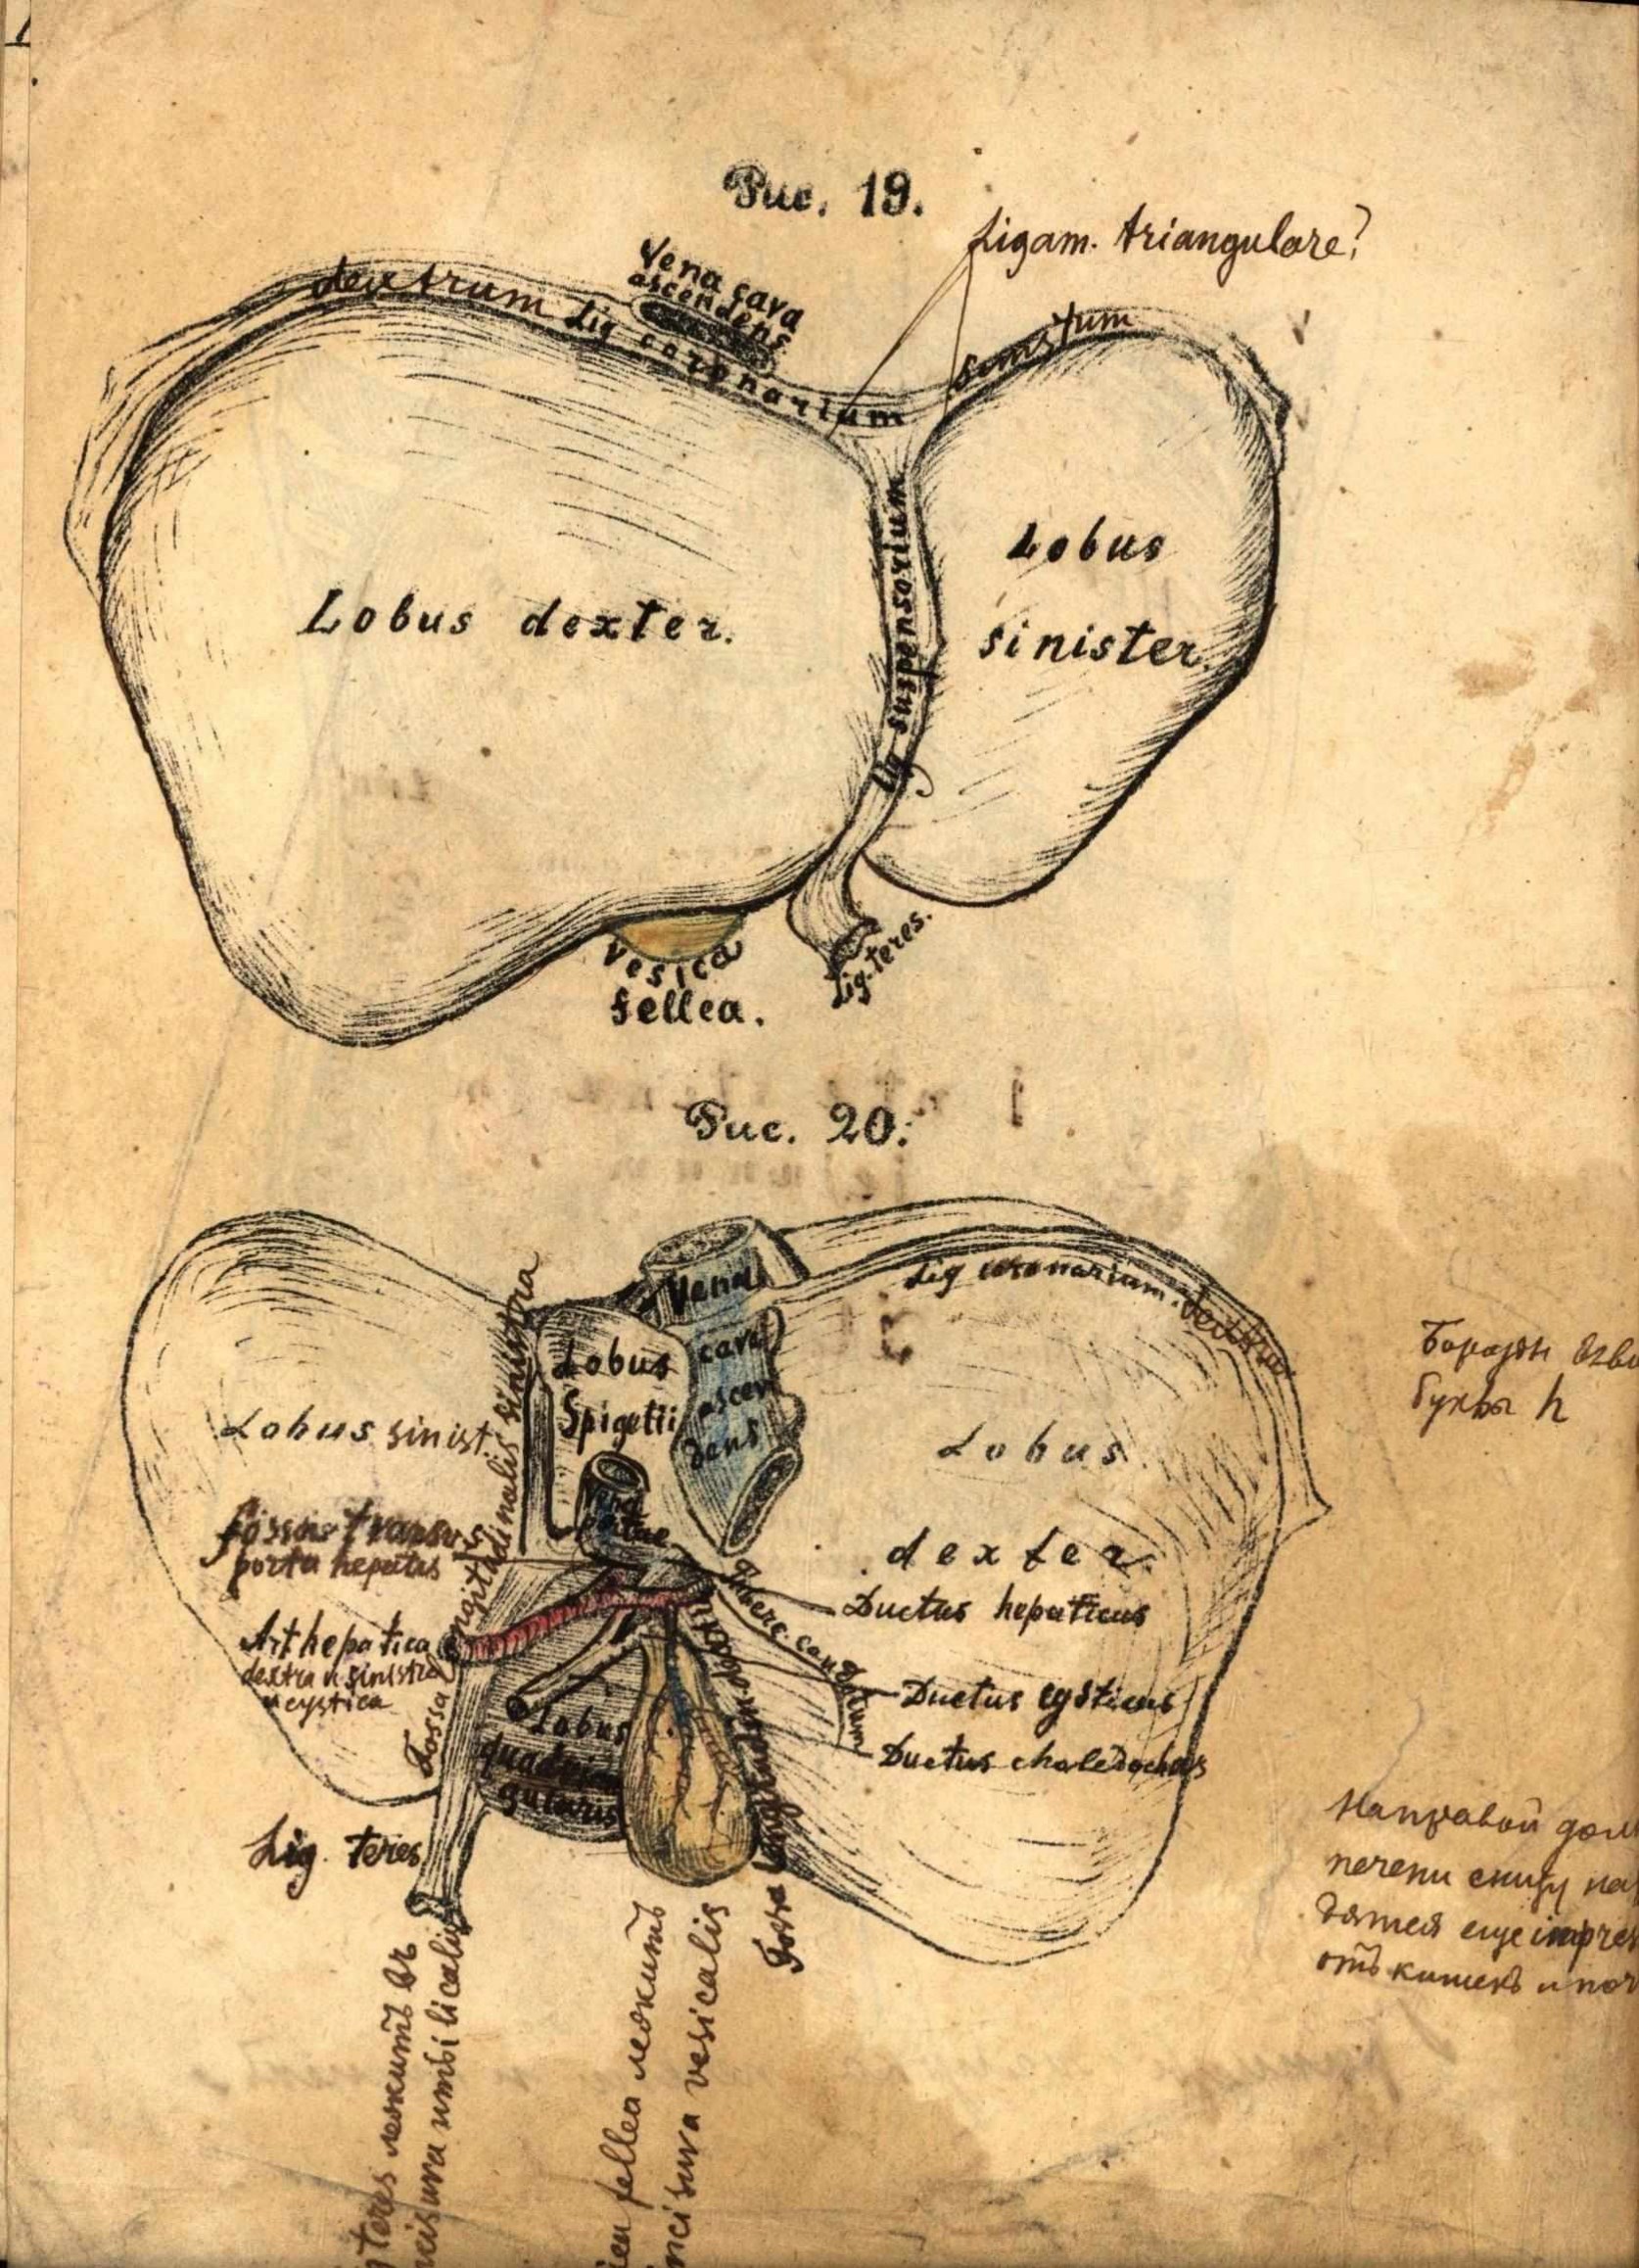 Рис. 19.
Ligam. triangulare?
Vena cava
ascendens
dextrum Lig coronarium
sinistrum
Lobus dexter.
Lobus
sinister.
Lig suspensorium
Vesica
fellea.
Lig. teres.
Рис. 20.
Vena
cava
ascen
dens
Lig coronarium dextrum
Lobus
Spigelii
Lobus sinist.
Fossa longitudinalis sinistra
Lobus
dexter.
Борозды
буквы h
Vena
portae
fossa transvers
porta hepatis
Ductus hepaticus
Art hepatica
dextra и sinistra
и cystica
Tuberc. caudatum
Ductus cysticus
Ductus choledochus
Lobus
quadrian
gularis
Lig. teres
Fossa longitudinalis dextra
На правой дол
печени снизу на
дятся еще impres
отъ кишекъ и поч
teres лежитъ въ
ncisura umbilicalis
fellea лежитъ
ncisura vesicalis